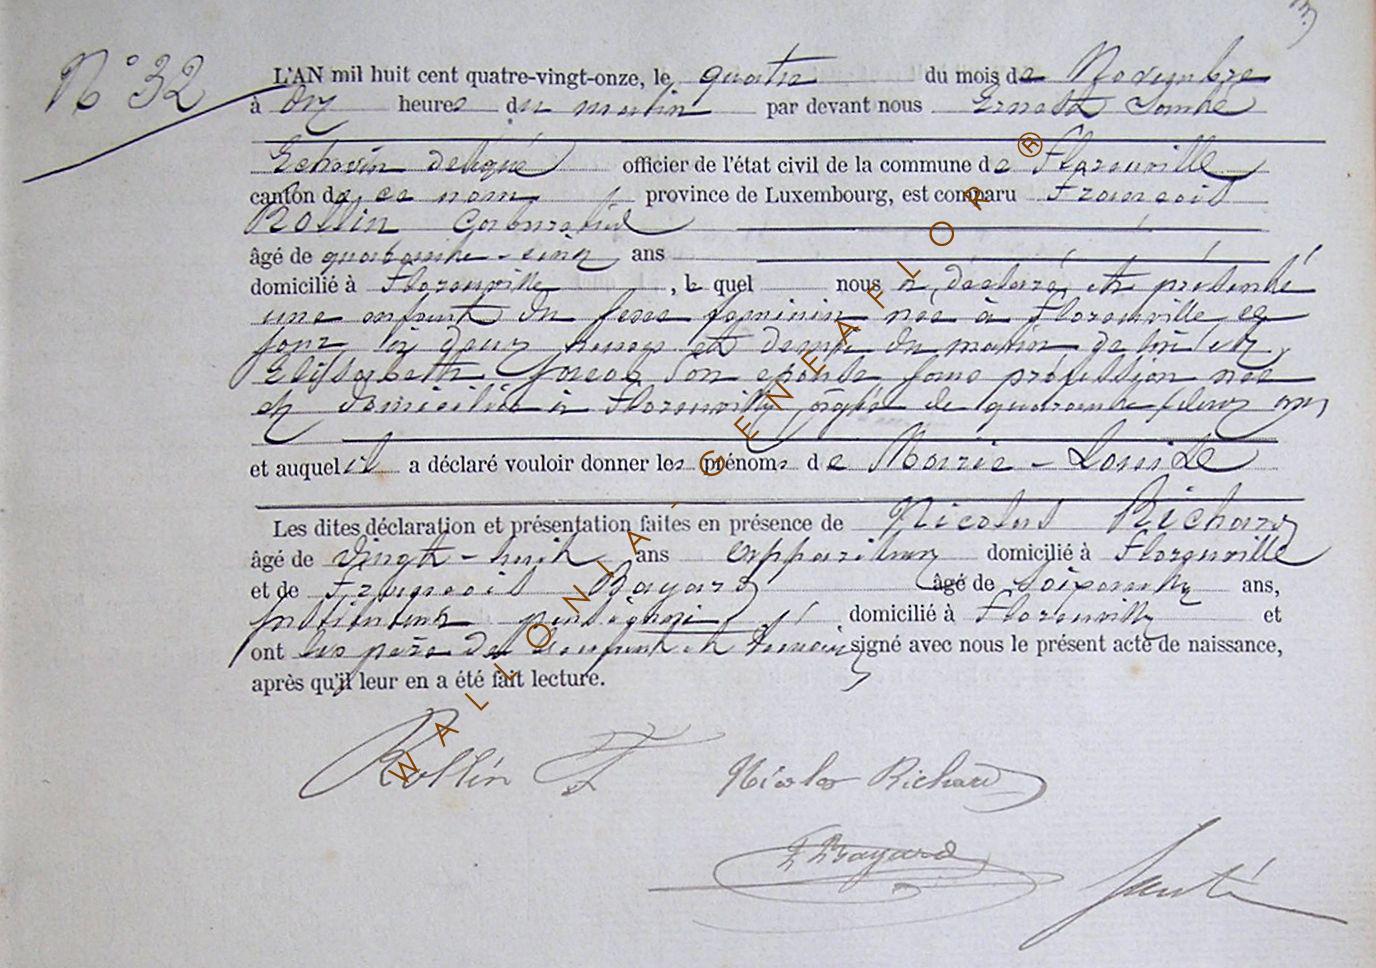 N° 32
L'AN mil huit cent quatre-vingt-onze, le quatre du mois de Novembre
à dix heures du matin par devant nous Ernest
Echevin délégué officier de l'état civil de la commune de Florenville
canton de ce nom province de Luxembourg, est comparu François
Rollin
âgé de quarante-cinq ans
domicilié à Florenville, le quel nous a déclaré et présenté
une enfant du sexe féminin née à Florenville ce
jour à deux heures et demie du matin de lui et
Elisabeth son épouse sans profession née
et domiciliée à Florenville âgée de quarante deux ans
et auquel il a déclaré vouloir donner les prénoms de Marie-Louise
Les dites déclaration et présentation faites en présence de Nicolas Richard
âgé de vingt-huit ans appariteur domicilié à Florenville
et de François Bayard âgé de soixante ans,
instituteur pensionné domicilié à Florenville et
ont les père de l'enfant et témoins signé avec nous le présent acte de naissance,
après qu'il leur en a été fait lecture.
Rollin F
Nicolas Richard
F Bayard
WALLONIA-GENEAFLOR®